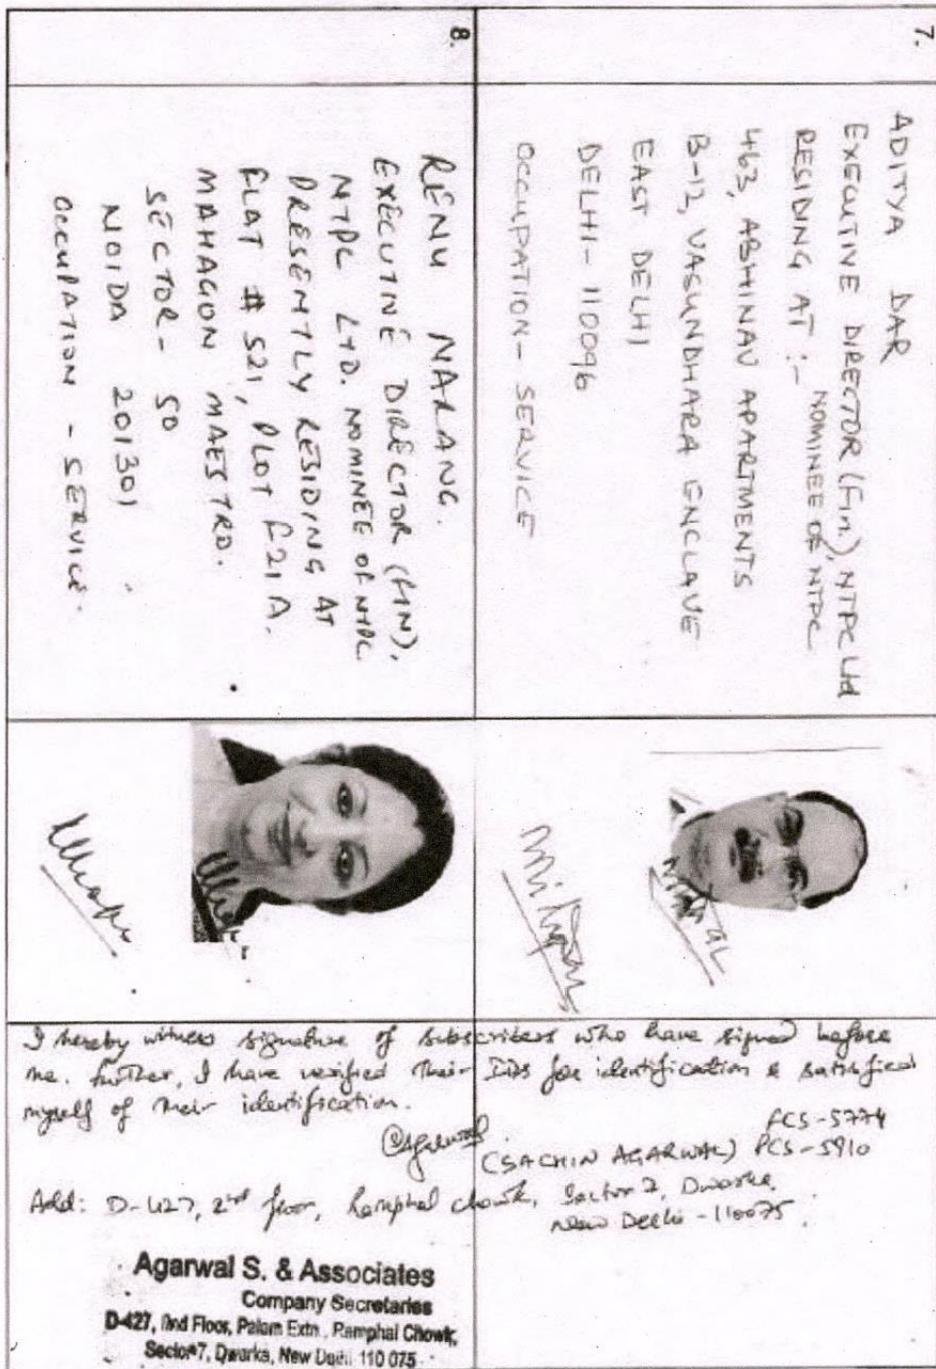 7.
ADITYA DAR
EXECUTIVE DIRECTOR (Fin.), NTPC Ltd
NOMINEE OF NTPC
RESIDING AT :-
463, ABHINAV APARTMENTS
B-12, VASUNDHARA ENCLAVE
EAST DELHI
DELHI - 110096
OCCUPATION - SERVICE
8.
RENU NARANG.
EXECUTIVE DIRECTOR (FIN),
NTPC LTD. NOMINEE OF NTPC.
PRESENTLY RESIDING AT
FLAT # 521, PLOT F21A.
MAHAGUN MAESTRO.
SECTOR - 50
NOIDA 201301
OCCUPATION - SERVICE.
I hereby witness signature of subscribers who have signed before
me. further, I have verified their IDs for identification & satisfied
myself of their identification.
FCS-5774
(SACHIN AGARWAL) PCS-5910
Add: D-427, 2nd floor, Ramphal chowk, Sector 7, Dwarka,
New Delhi - 110075.
Agarwal S. & Associates
Company Secretaries
D-427, IInd Floor, Palam Extn., Ramphal Chowk,
Sector-7, Dwarka, New Delhi 110 075